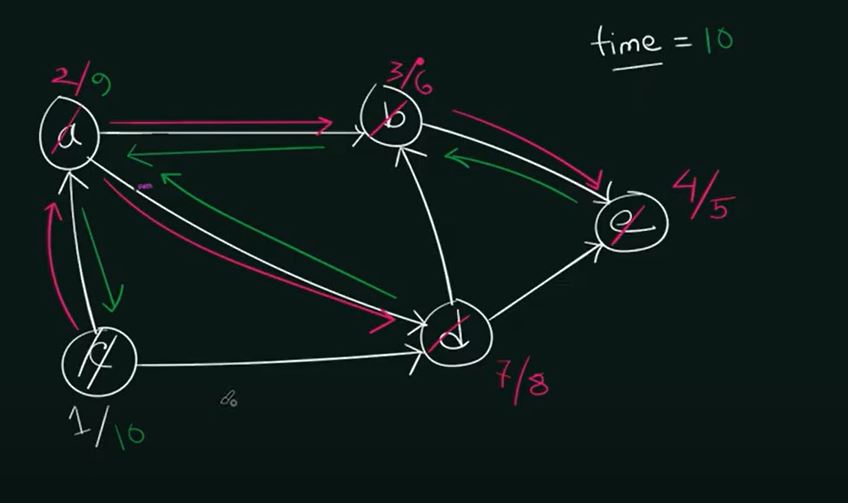 time = 10
2/9
3/6
a
b
4/5
e
d
c
7/8
1/10